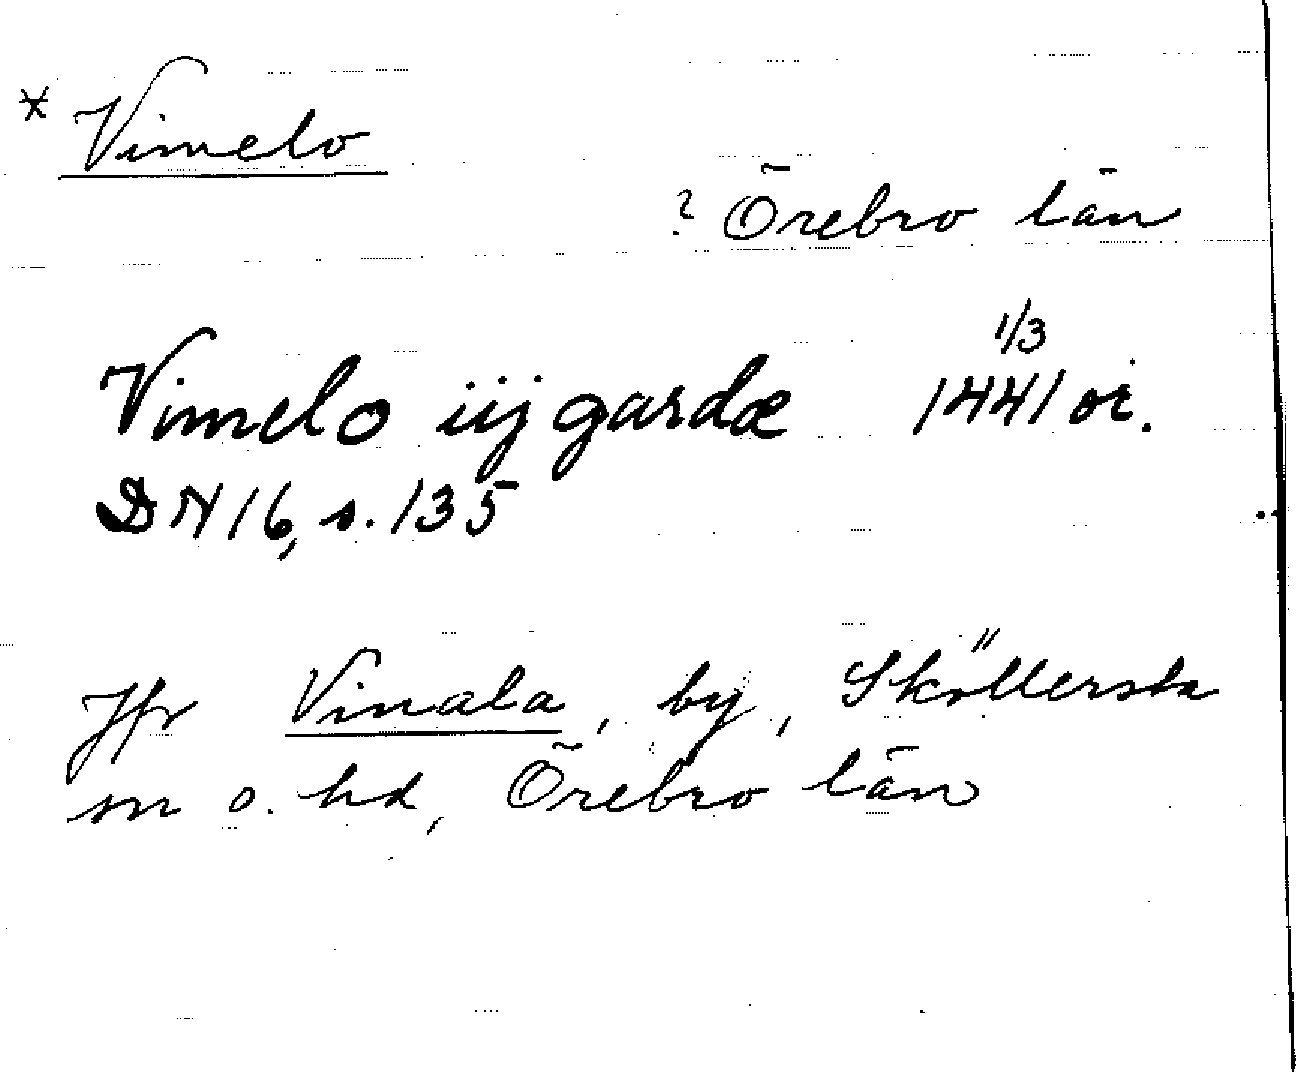 * Vimelo
? Örebro län
Vimelo iij gardæ 1441 1/3 or.
DN 16, s. 135
Jfr Vinala, by, Sköllersta
sn o. hd, Örebro län